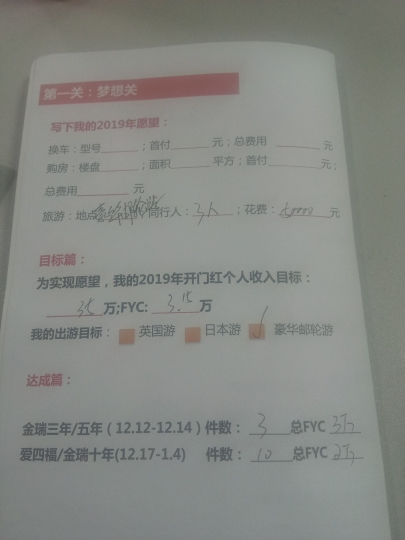 第一关：梦想关
写下我的2019年愿望：
换车：型号______；首付______元；总费用______元
购房：楼盘______；面积______平方；首付______元；
总费用______元
旅游：地点 同行人：3人；花费：50000元
目标篇：
为实现愿望，我的2019年开门红个人收入目标：
35万;FYC: 3.15万
我的出游目标： 英国游 日本游 √ 豪华邮轮游
达成篇：
金瑞三年/五年（12.12-12.14）件数： 3 总FYC 3万
爱四福/金瑞十年(12.17-1.4) 件数： 10 总FYC 2万